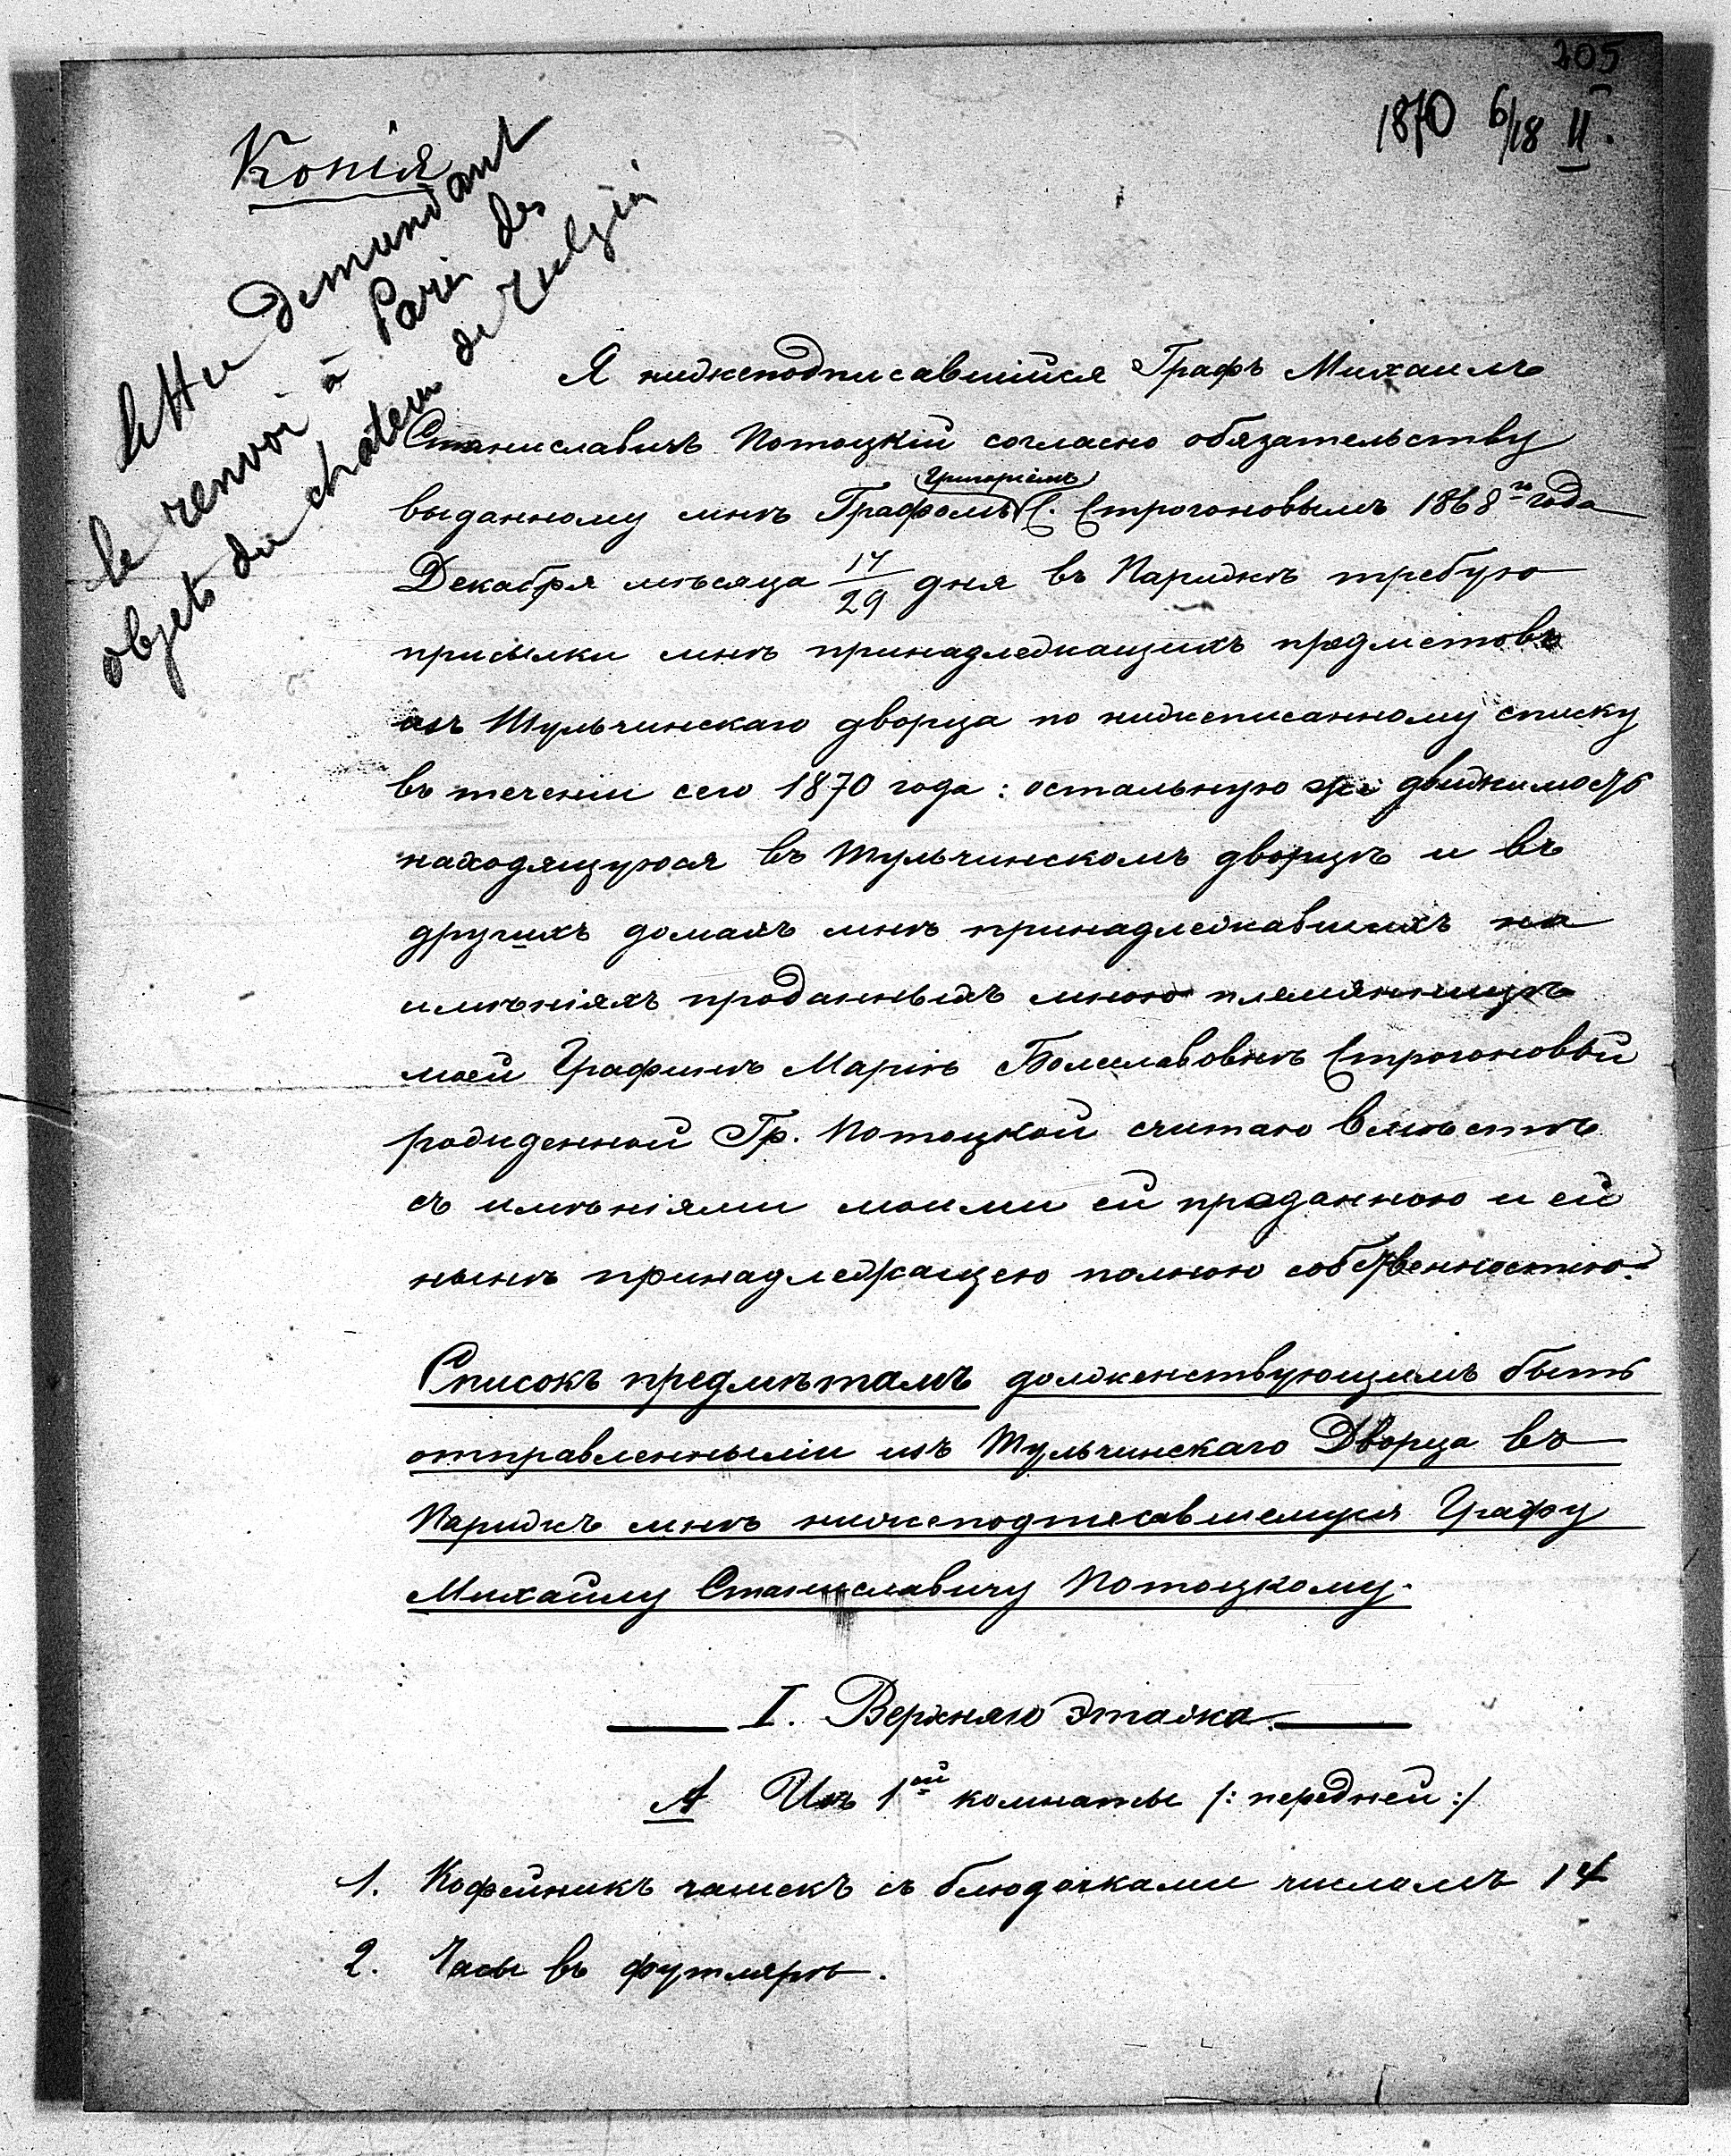 205
1870 6/18 II.
Копія
lettre demandant
le renvoi à Paris des
objets du château de Tulczin
Я нижеподписавшійся Графъ Михаилъ
Станиславичъ Потоцкій согласно обязательству
выданному мнѣ Графомъ Григоріемъ С. Строгоновымъ 1868го года
Декабря мѣсяца 17/29 дня въ Парижѣ требую
присылки мнѣ принадлежащихъ предметовъ
изъ Тульчинскаго дворца по нижеписанному списку
въ теченіи сего 1870 года: остальную же движимость
находящуюся въ Тульчинскомъ дворцѣ и въ
другихъ домахъ мнѣ принадлежавшихъ на
имѣніяхъ проданныхъ мною племянницѣ
моей Графинѣ Маріѣ Болеславовнѣ Строгоновой
рожденной Гр. Потоцкой считаю вмѣстѣ
съ имѣніями моими ей проданною и ей
нынѣ принадлежащею полною собственностію.
Списокъ предмѣтамъ долженствующимъ быть
отправленными изъ Тульчинскаго Дворца въ
Парижъ мнѣ нижеподписавшемуся Графу
Михаилу Станиславичу Потоцкому.
I. Верхняго Этажа.
А Изъ 1ой комнаты /: передней :/
1. Кофейникъ чашекъ съ блюдечками числомъ 14
2. Часы въ футлярѣ.